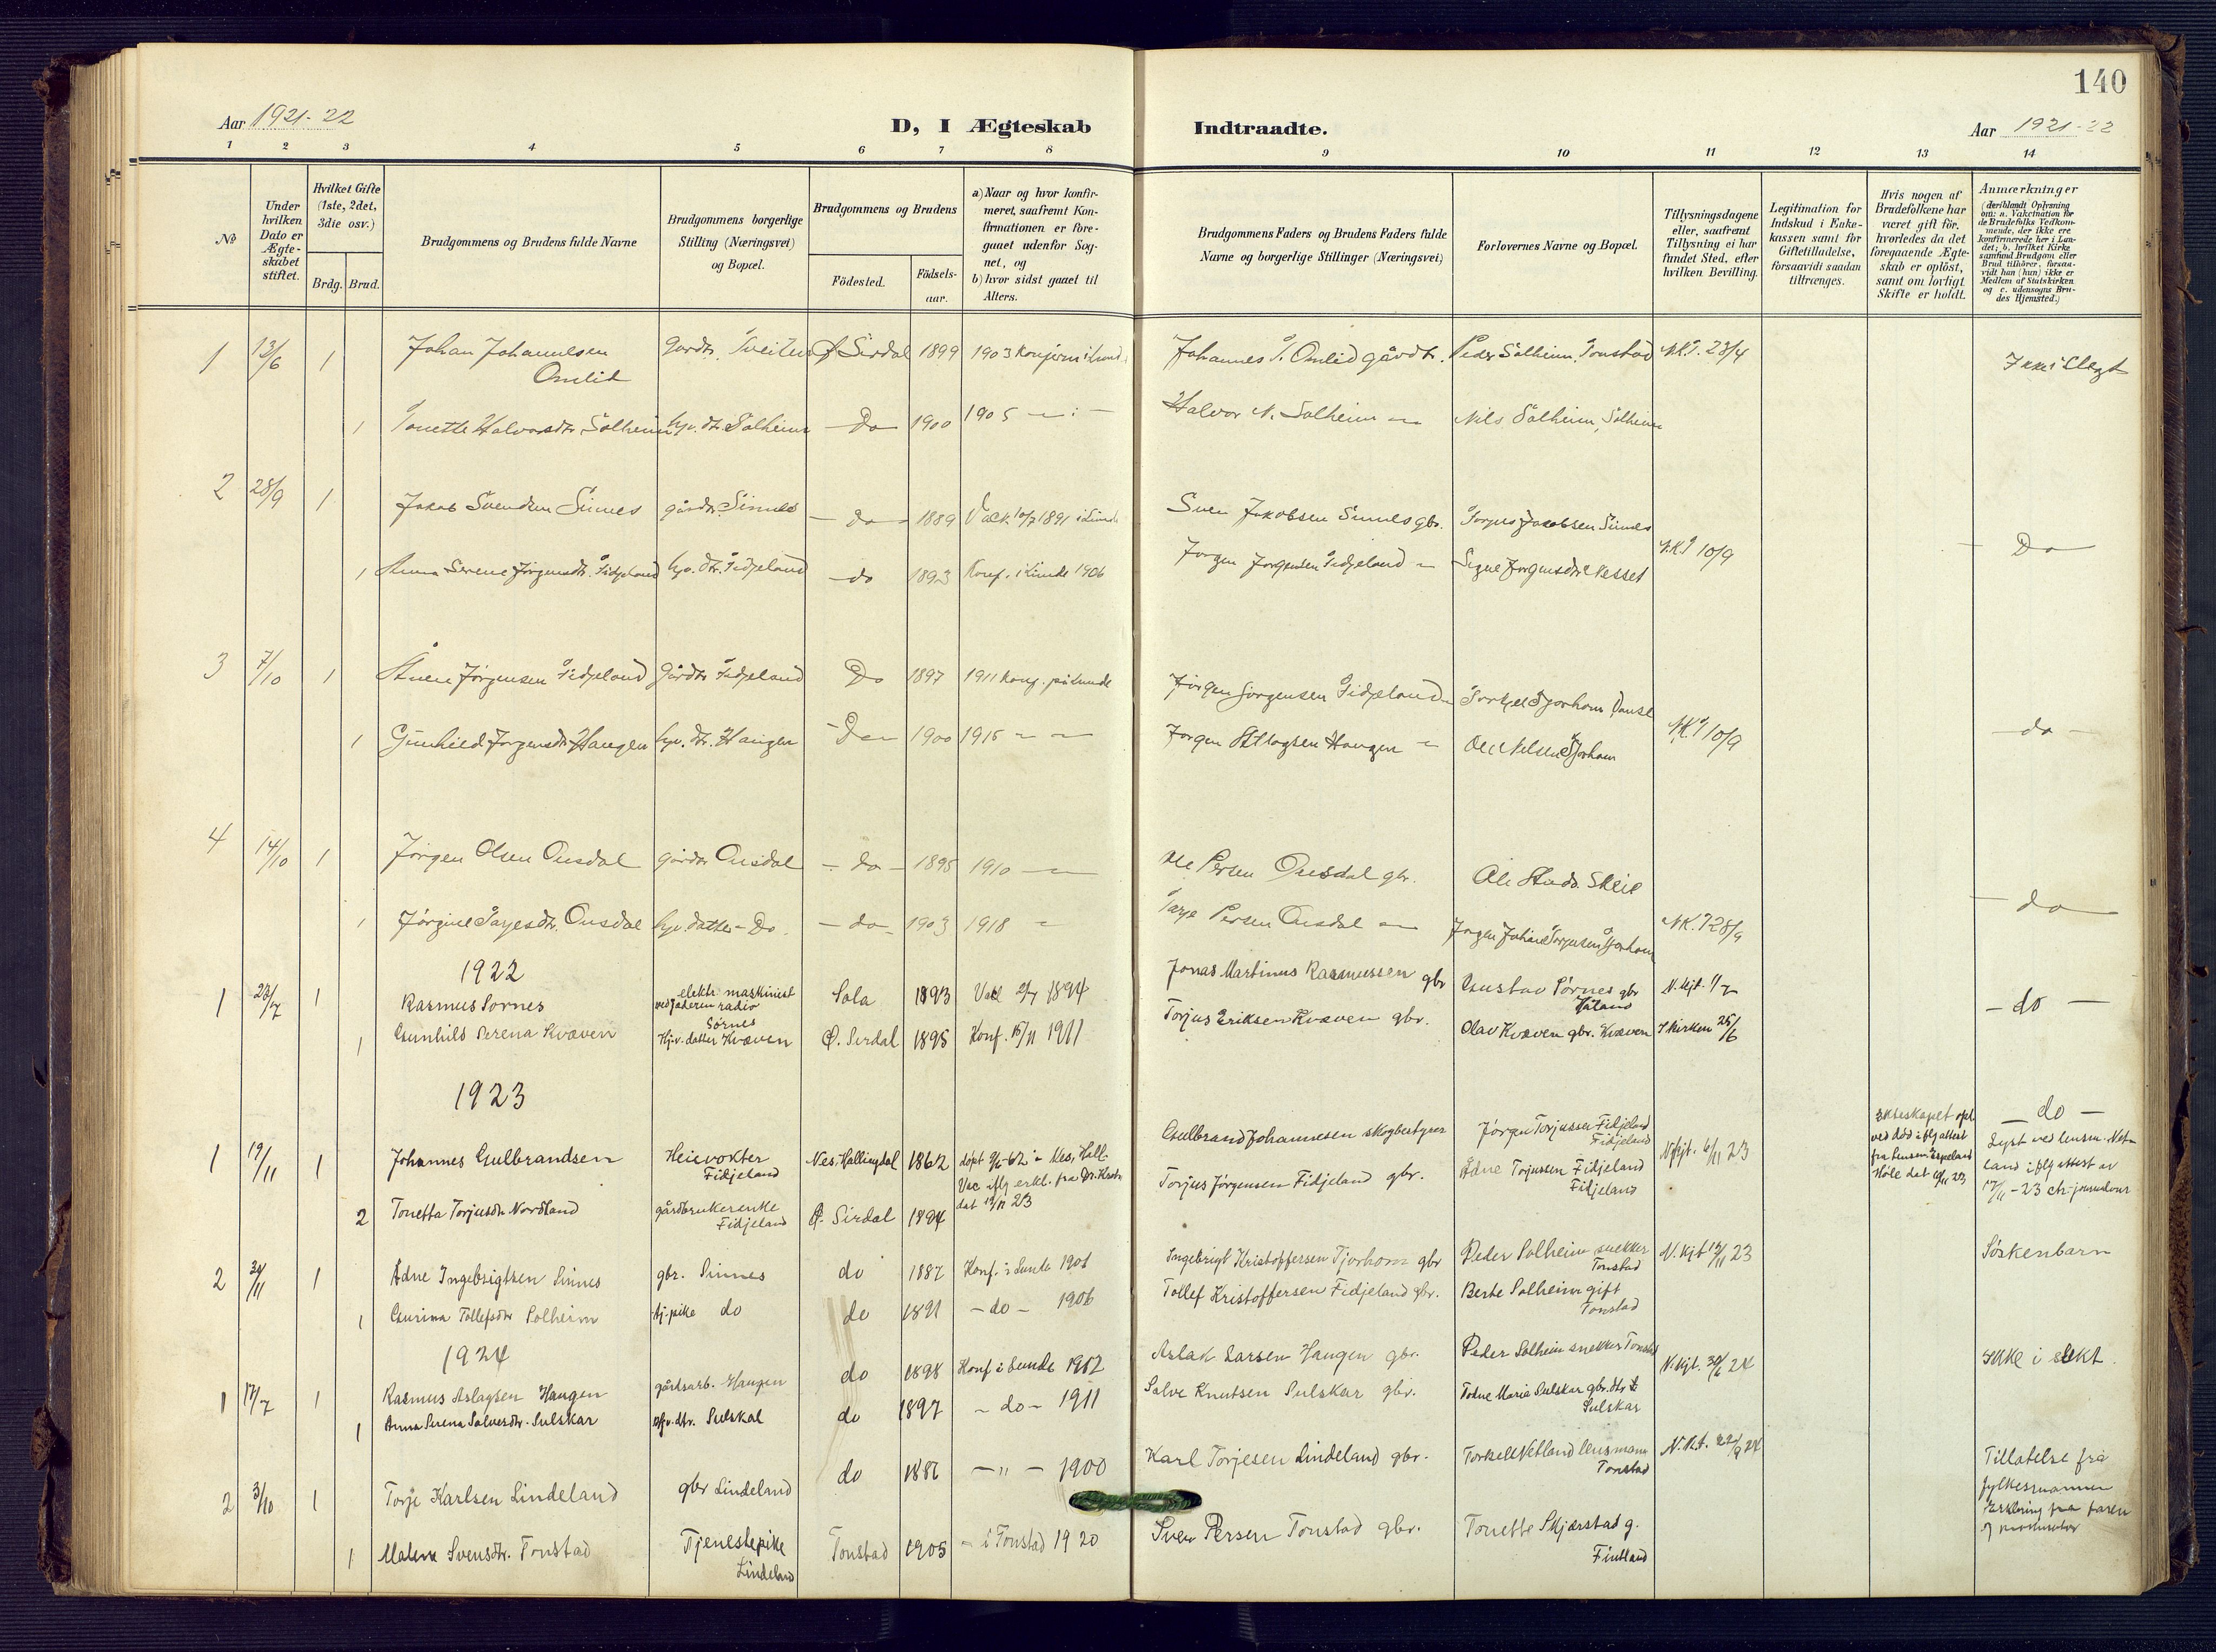 140
Aar 1921-22
D, I Ægteskab Indtraadte.
Aar 1921-22
1 2 3 4 5 6 7 8 9 10 11 12 13 14
No
Under hvilken Dato er Ægteskabet stiftet.
Hvilket Gifte (1ste, 2det, 3die osv.)
Brdg. Brud.
Brudgommens og Brudens fulde Navne
Brudgommens borgerlige Stilling (Næringsvei) og Bopæl.
Brudgommens og Brudens
Födested. Födsels-aar.
a) Naar og hvor konfirmeret, saafremt Konfirmationen er foregaaet udenfor Sognet, og
b) hvor sidst gaaet til Alters.
Brudgommens Faders og Brudens Faders fulde Navne og borgerlige Stillinger (Næringsvei)
Forlovernes Navne og Bopæl.
Tillysningsdagene eller, saafremt Tillysning ei har fundet Sted, efter hvilken Bevilling.
Legitimation for Indskud i Enkekassen samt for Giftetilladelse, forsaavidt saadan tiltrænges.
Hvis nogen af Brudefolkene har været gift för, hvorledes da det foregaaende Ægteskab er oplöst, samt om lovligt Skifte er holdt.
Anmærkninger (deriblandt Oplysning om: a. Vakcination for de Brudefolks Vedkommende, der ikke ere konfirmerede her i Landet; b. hvilket Kirkesamfund Brudgom eller Brud tilhörer, forsaavidt han (hun) ikke er Medlem af Statskirken og c. udensogns Brudes Hjemsted.)
1 13/6 1 Johan Johannesen Omlid gårdbr. Tveiten Ø Sirdal 1899 1903 Johannes T. Omlid gårdbr. Peder Solheim, Tonstad N.K.T. 23/4 Ikke i Slegt
1 Tonette Halvorsdtr. Solheim hjv. dtr. Solheim Do 1900 1905 Halvor N. Solheim Nils Solheim, Solheim
2 28/9 1 Jakob Svendsen Sinnes gårdbr. Sinnes do 1889 Vack. 10/7 1891 i Lunde Sven Jakobsen Sinnes gbr. Jacobsen Sinnes N.K.T 10/9 Do
1 Anna Serene Jørgensdtr. Fidjeland hjv. dtr. Fidjeland do 1893 Konf. i Lunde 1906 Jørgen Jørgensen Fidjeland Signe Jørgensdtr.
3 7/10 1 Jørgensen Fidjeland Gårdbr Fidjeland Do 1897 1911 Konf. på Lunde Jørgen Jørgensen Fidjeland Torkjel Tjorhom
1 Gunhild Jørgensdtr Haugen hjv. dtr. Haugen Do 1900 1915 Jørgen Atlagsen Haugen Ole Nilsen Tjorhom N.K.T 10/9 do
4 14/10 1 Jørgen Olsen Ousdal gårdbr Ousdal do 1895 1910 Ole Persen Ousdal gbr. Skeie
1 Jørgine Tarjesdtr. Ousdal hjv. datter Do. do 1903 1918 Tarje Persen Ousdal Jørgen Johan Tjorhom N.K.T 28/9 do
1922
1 23/7 1 Rasmus Sørnes elektr. maskinist ved Jæderen radio Sørnes Sola 1893 1894 Jonas Martinus Rasmussen gbr Gustav Sørnes gbr Håland N. kjt. 1/7 do
1 Gunhild Serena Kvæven Hjv. datter Kvæven Ø. Sirdal 1895 Konf. 15/11 1911 Torjus Eriksen Kvæven gbr. Olav Kvæven gbr. Kvæven I kirken 25/6
1923
1 19/11 1 Johannes Gulbrandsen Heievokter Fidjeland Nes, Hallingdal 1862 døpt 9/6-62 i Nes, Hall. Vac iflg erkl. fra Dr. dat 13/11 23 Gulbrand Johannesen skogbestyrer Jørgen Torjussen Fidjeland Fidjeland N. kjt. 6/11 23 Ekteskapet opl. ved død iflg attest fra lensm. Espeland Høle dat 10/11 23 do Lyst ved lensm. Netland iflg attest av 17/11-23
2 Tonetta Torjusdtr Nordland gårdbrukerenke Fidjeland Ø. Sirdal 1894 Torjus Jørgensen Fidjeland gbr. Ådne Torjussen Fidjeland Fidjeland
2 30/11 1 Ådne Ingebrigtsen Sinnes gbr. Sinnes do 1887 Konf. i Lunde 1901 Ingebrigt Kristoffersen Tjorhom gbr Peder Solheim snekker Tonstad N. kjt 12/11 23 Söskenbarn
1 Gurina Tollefsdtr Solheim tj.pike do do 1891 -do- 1906 Tollef Kristoffersen Fidjeland gbr. Berte Solheim gift Tonstad
1924
1 17/7 1 Rasmus Aslagsen Haugen gårdsarb. Haugen do 1898 Konf i Lunde 1912 Aslak Larsen Haugen gbr. Peder Solheim snekker Tonstad N. kjt. 30/6 24 Ikke i slekt
1 Anna Serena Salvesdtr. Suleskar hjv. dtr. Suleskar do 1897 - do - 1911 Salve Knutsen Suleskar gbr. Todne Maria Suleskar gbr. dtr. Suleskar
2 3/10 1 Torje Karlsen Lindeland gbr Lindeland do 1886 - " - 1900 Karl Torjesen Lindeland gbr. Torkell Netland lensmann Tonstad N. Kt. 22/9 24 Tillatelse fra fylkesmannen Erklering fra faren
1 Malene Svensdtr. Tonstad Tjenestepike Lindeland Tonstad 1905 - i Tonstad 1920 Sven Persen Tonstad gbr. Tonette Skjærstad g. Fintland